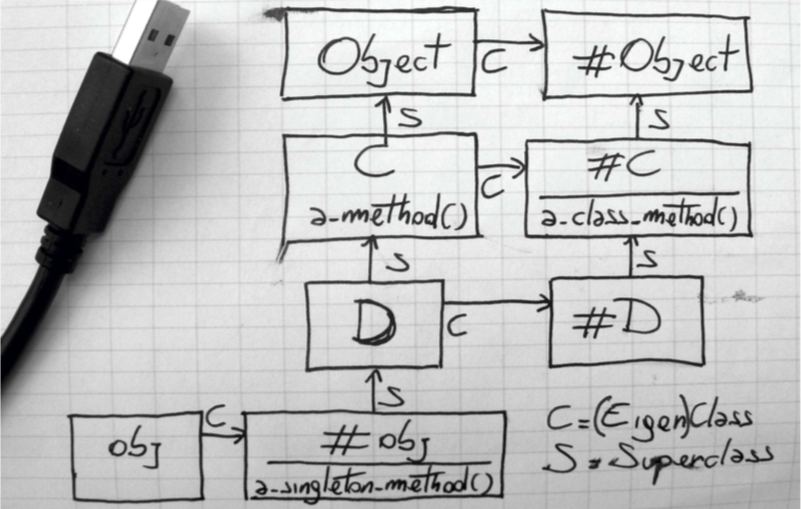 Object
C
#Object
S
S
C
a-method()
C
#C
a-class-method()
S
S
D
C
#D
S
obj
C
#obj
a-singleton-method()
C=(Eigen)Class
S = Superclass